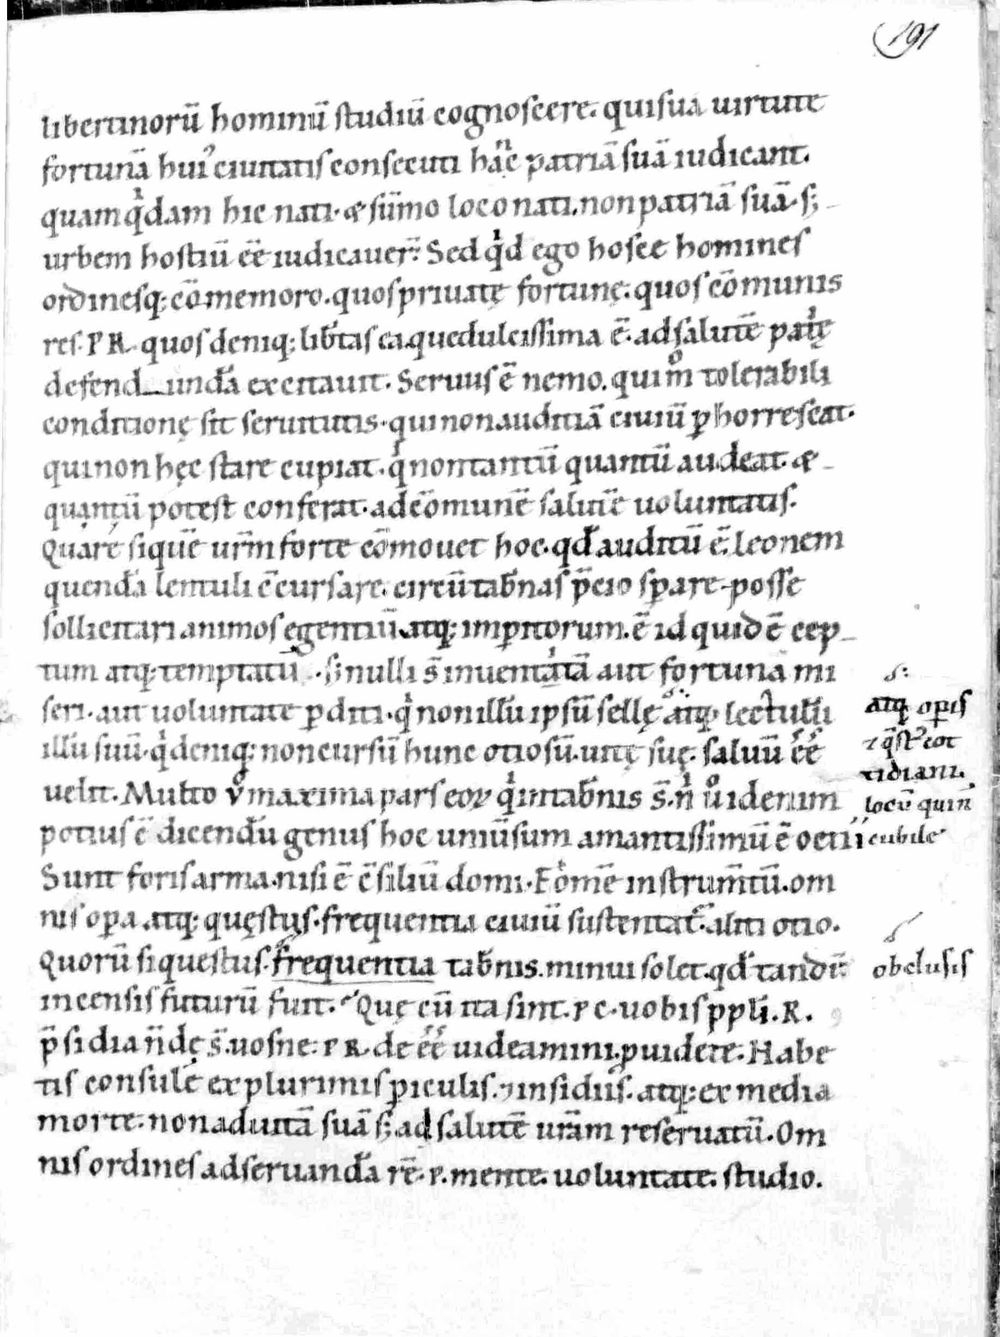 191
libertinorū hominū studiū cognoscere. qui sua uirtute
fortunā hui᾽ ciuitatis consecuti hāc patriā suā iudicant.
quam qͥdam hic nati. & sūmo loco nati. non patriā suā. s;
urbem hostiū eē iudicauer̄. Sed qͥd ego hosce homines
ordinesq; cōmemoro. quos priuatę fortunę. quos cōmunis
res. P R. quos deniq; lib̄tas ea. que dulcissima ē. ad salutē patͥę
defend undā excitauit. Seruus ē nemo. qui mͦ tolerabili
conditionę sit seruitutis. qui non auditiā ciuiū ꝑhorrescat.
qui non hęc stare cupiat. qͥ non tantū quantū audeat. &
quantū potest conferat. ad cōmunē salutē uoluntatis.
Quare si quē ur̄m forte cōmouet hoc. qd̄ auditū ē. leonem
quendā lentuli c̄cursare. circū tab̄nas p̄cio sꝑare posse
sollicitari animos egentiū. atq; imꝑitorum. ē id quidē cep
tum atq; temptatū. s; nulli s̄ inuenti tā aut fortuna mi
seri. aut uoluntate ꝑditi. qͥ non illū ipsū sellę atq; lectulū
illū suū. qͥ deniq; non cursū hunc otiosū. uitę suę. saluū eē
uelit. Multo v̊ maxima pars eoꝝ qͥ in tab̄nis s̄. n̄ uͦ idenim
potius ē dicendū genus hoc uniūsum amantissimū ē ocii
Sunt foris arma. nisi ē c̄siliū domi. Eͦ om̄e instrum̄tū. om
nis oꝑa atq; quęstus. frequentia ciuiū sustentat᷑. alit᷑ otio.
Quorū si questus. frequentia tab̄nis. minui solet. qd̄ tandē
incensis futurū fuit. Quę cū ita sint. P C. uobis ppl̄i. R.
p̄sidia n̄ dę s̄. uos ne. P R. de eē uideamini. ꝓuidete. Habe
tis consulē ex plurimis ꝑiculis. ⁊ insidiis. atq; ex media
morte. non ad uitā suā s; ad salutē ur̄am reseruatū. Om
nis ordines ad seruandā rē. P. mente. uoluntate. studio.
s:
atq; oꝑis
⁊ q̄st᷑ cot
tidiani.
locū quin
cubile
obclusis